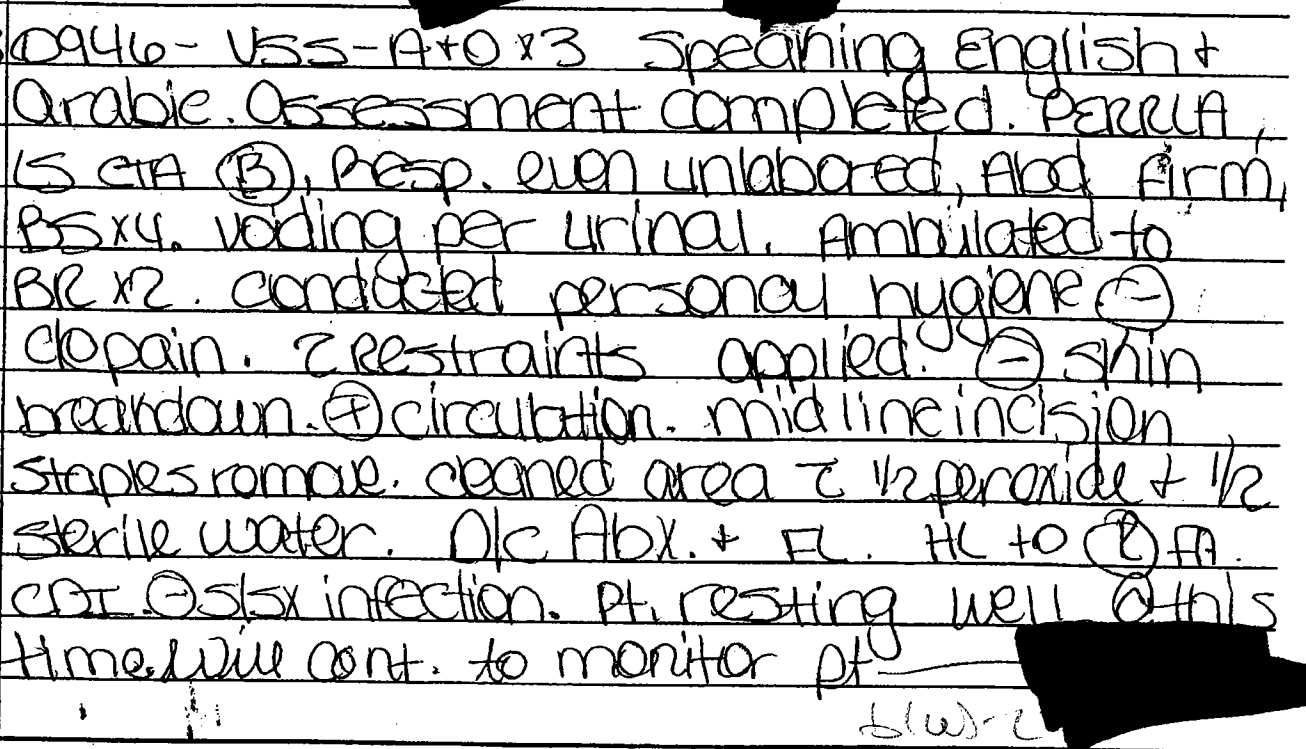 0946- VSS-A+O x3 Speaking English +
arabic. Assessment completed. PERRLA,
LS CTA (B), Resp. even unlabored, Abd firm,
BSx4. voiding per urinal. Ambulated to
BR x2. conducted personal hygiene (-)
c/o pain. 2 Restraints applied. (-) skin
breakdown. (+) circulation. midline incision
staples romove. cleaned area c̄ 1/2 peroxide + 1/2
sterile water. D/c Abx. + FL. HL to (R) FA.
CDI. (-) s/sx infection. Pt. resting well @ this
time. Will cont. to monitor pt
b(6)-2